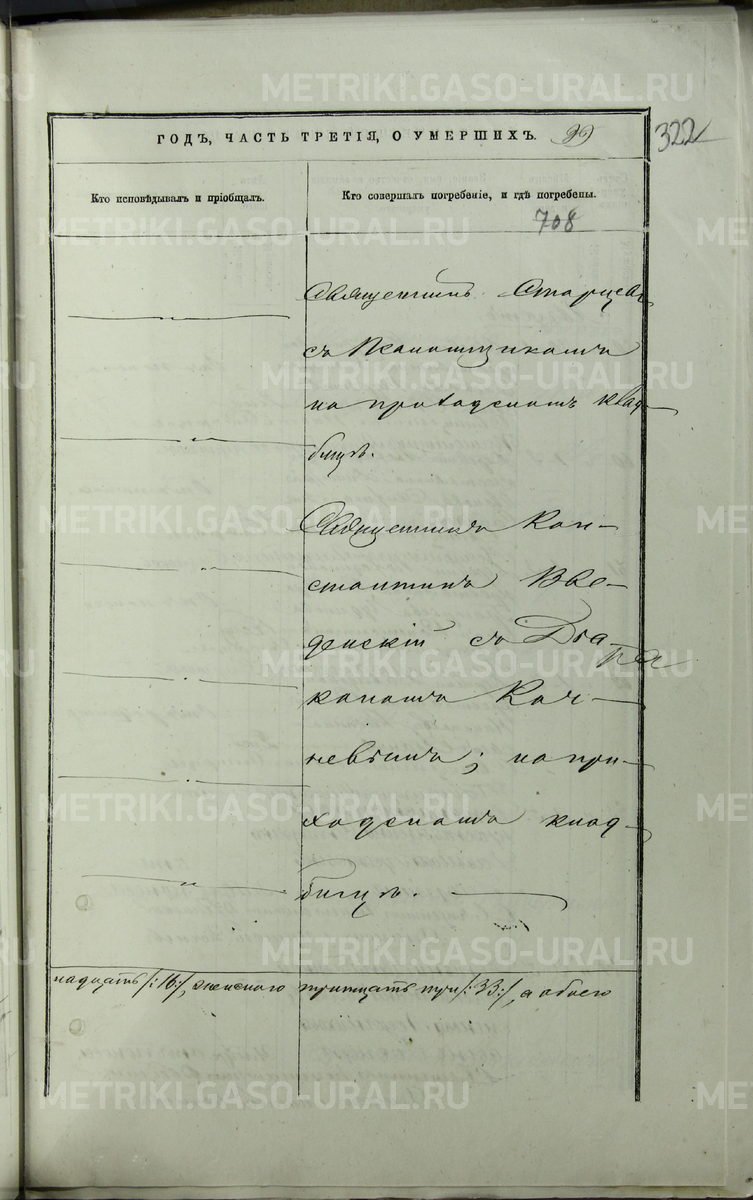 ГОДЪ, ЧАСТЬ ТРЕТІЯ, О УМЕРШИХЪ.
99
322
Кто исповѣдывалъ и пріобщалъ.
Кто совершалъ погребеніе, и гдѣ погребены.
708
Священникъ Старцевъ
съ
на приходскомъ клад-
бищѣ.
Священникъ Кон-
стантинъ Вве-
денскій съ Діа-
кономъ
на при-
ходскомъ клад-
бищѣ.
надцать /:16:/, женскаго тритцать три /:33:/, а обоего
METRIKI.GASO-URAL.RU